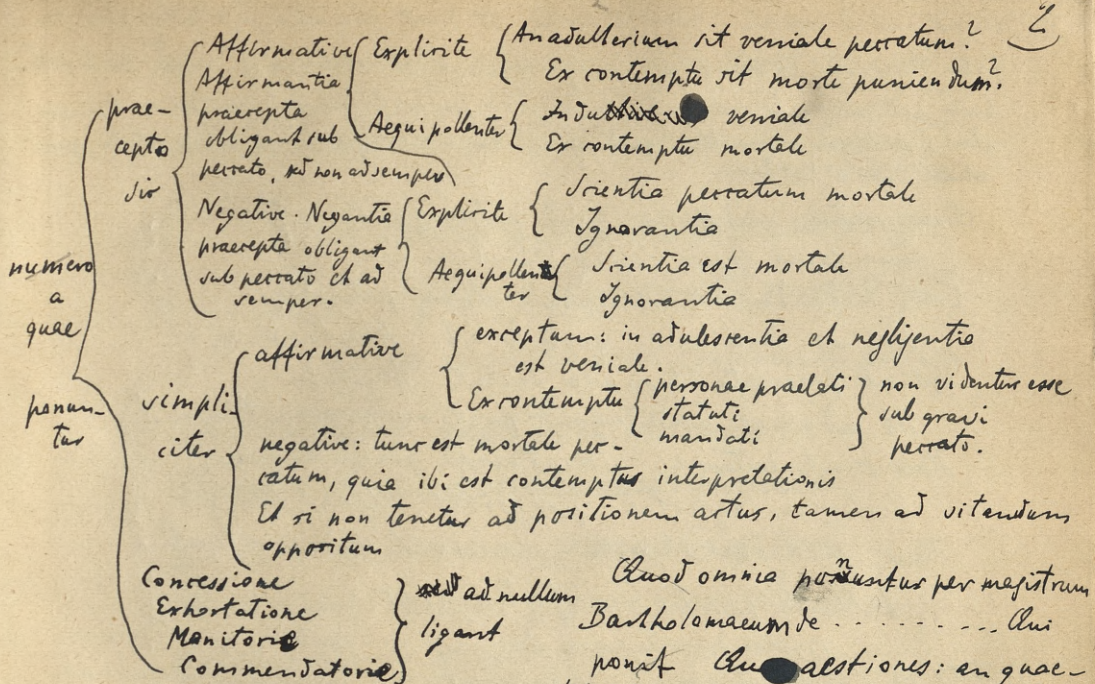 2
numero
a
quae
ponun-
tur
prae-
cepto
sir
Affirmative
Affirmantia
praecepta
obligant sub
peccato, sed non ad semper
Explicite
An adulterium sit veniale peccatum?
Ex contemptu sit morte puniendum?
Aequipollenter
veniale
Ex contemptu mortale
Negative. Negantia
praecepta obligant
sub peccato et ad
semper.
Explicite
Scientia peccatum mortale
Ignorantia
Aequipollen
ter
Scientia est mortale
Ignorantia
simpli-
citer
affirmative
exceptum: in adulescentia et negligentia
est veniale.
Ex contemptu
personae praelati
statuti
mandati
non videntur esse
sub gravi
peccato.
negative: tunc est mortale pec-
catum, quia ibi est contemptus interpretationis
Et si non tenetur ad positionem actus, tamen ad vitandum
oppositum
Concessione
Exhortatione
Monitorie
Commendatorie
ad nullum
ligant
Quod omnia ponuntur per magistrum
Bartholomaeum de .......... Qui
ponit Quaestiones: an quae-